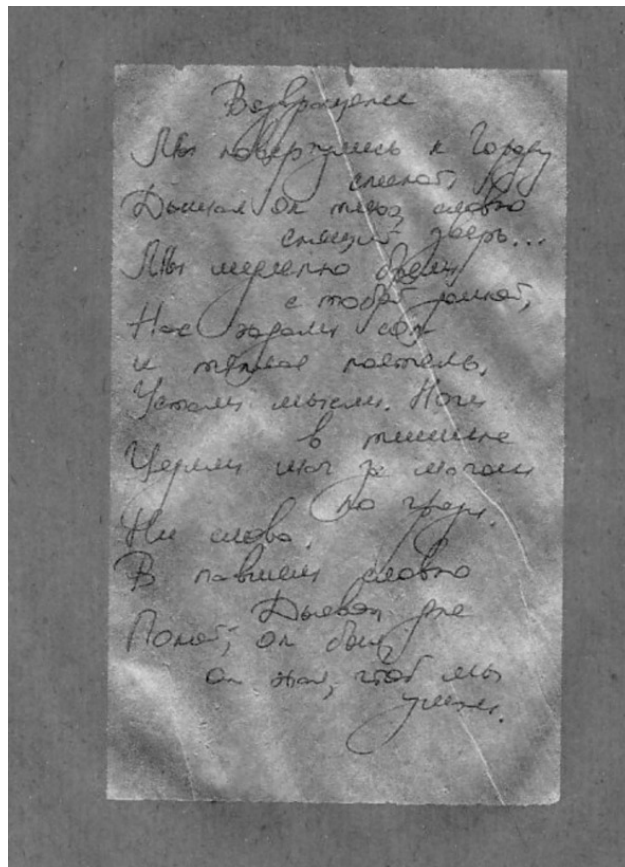 Возвращение
Мы повернулись к Городу
спиной,
Дышал он тихо, словно
спящий зверь...
Мы медленно брели
с тобой домой,
Нас ждали сон
и тёплая постель.
Устали мысли. Ноги
в тишине
Черели шаг за шагом
по гряз.
Ни слова.
В павшем словно
Покой, он был,
он ждал, чтоб мы
ушли.